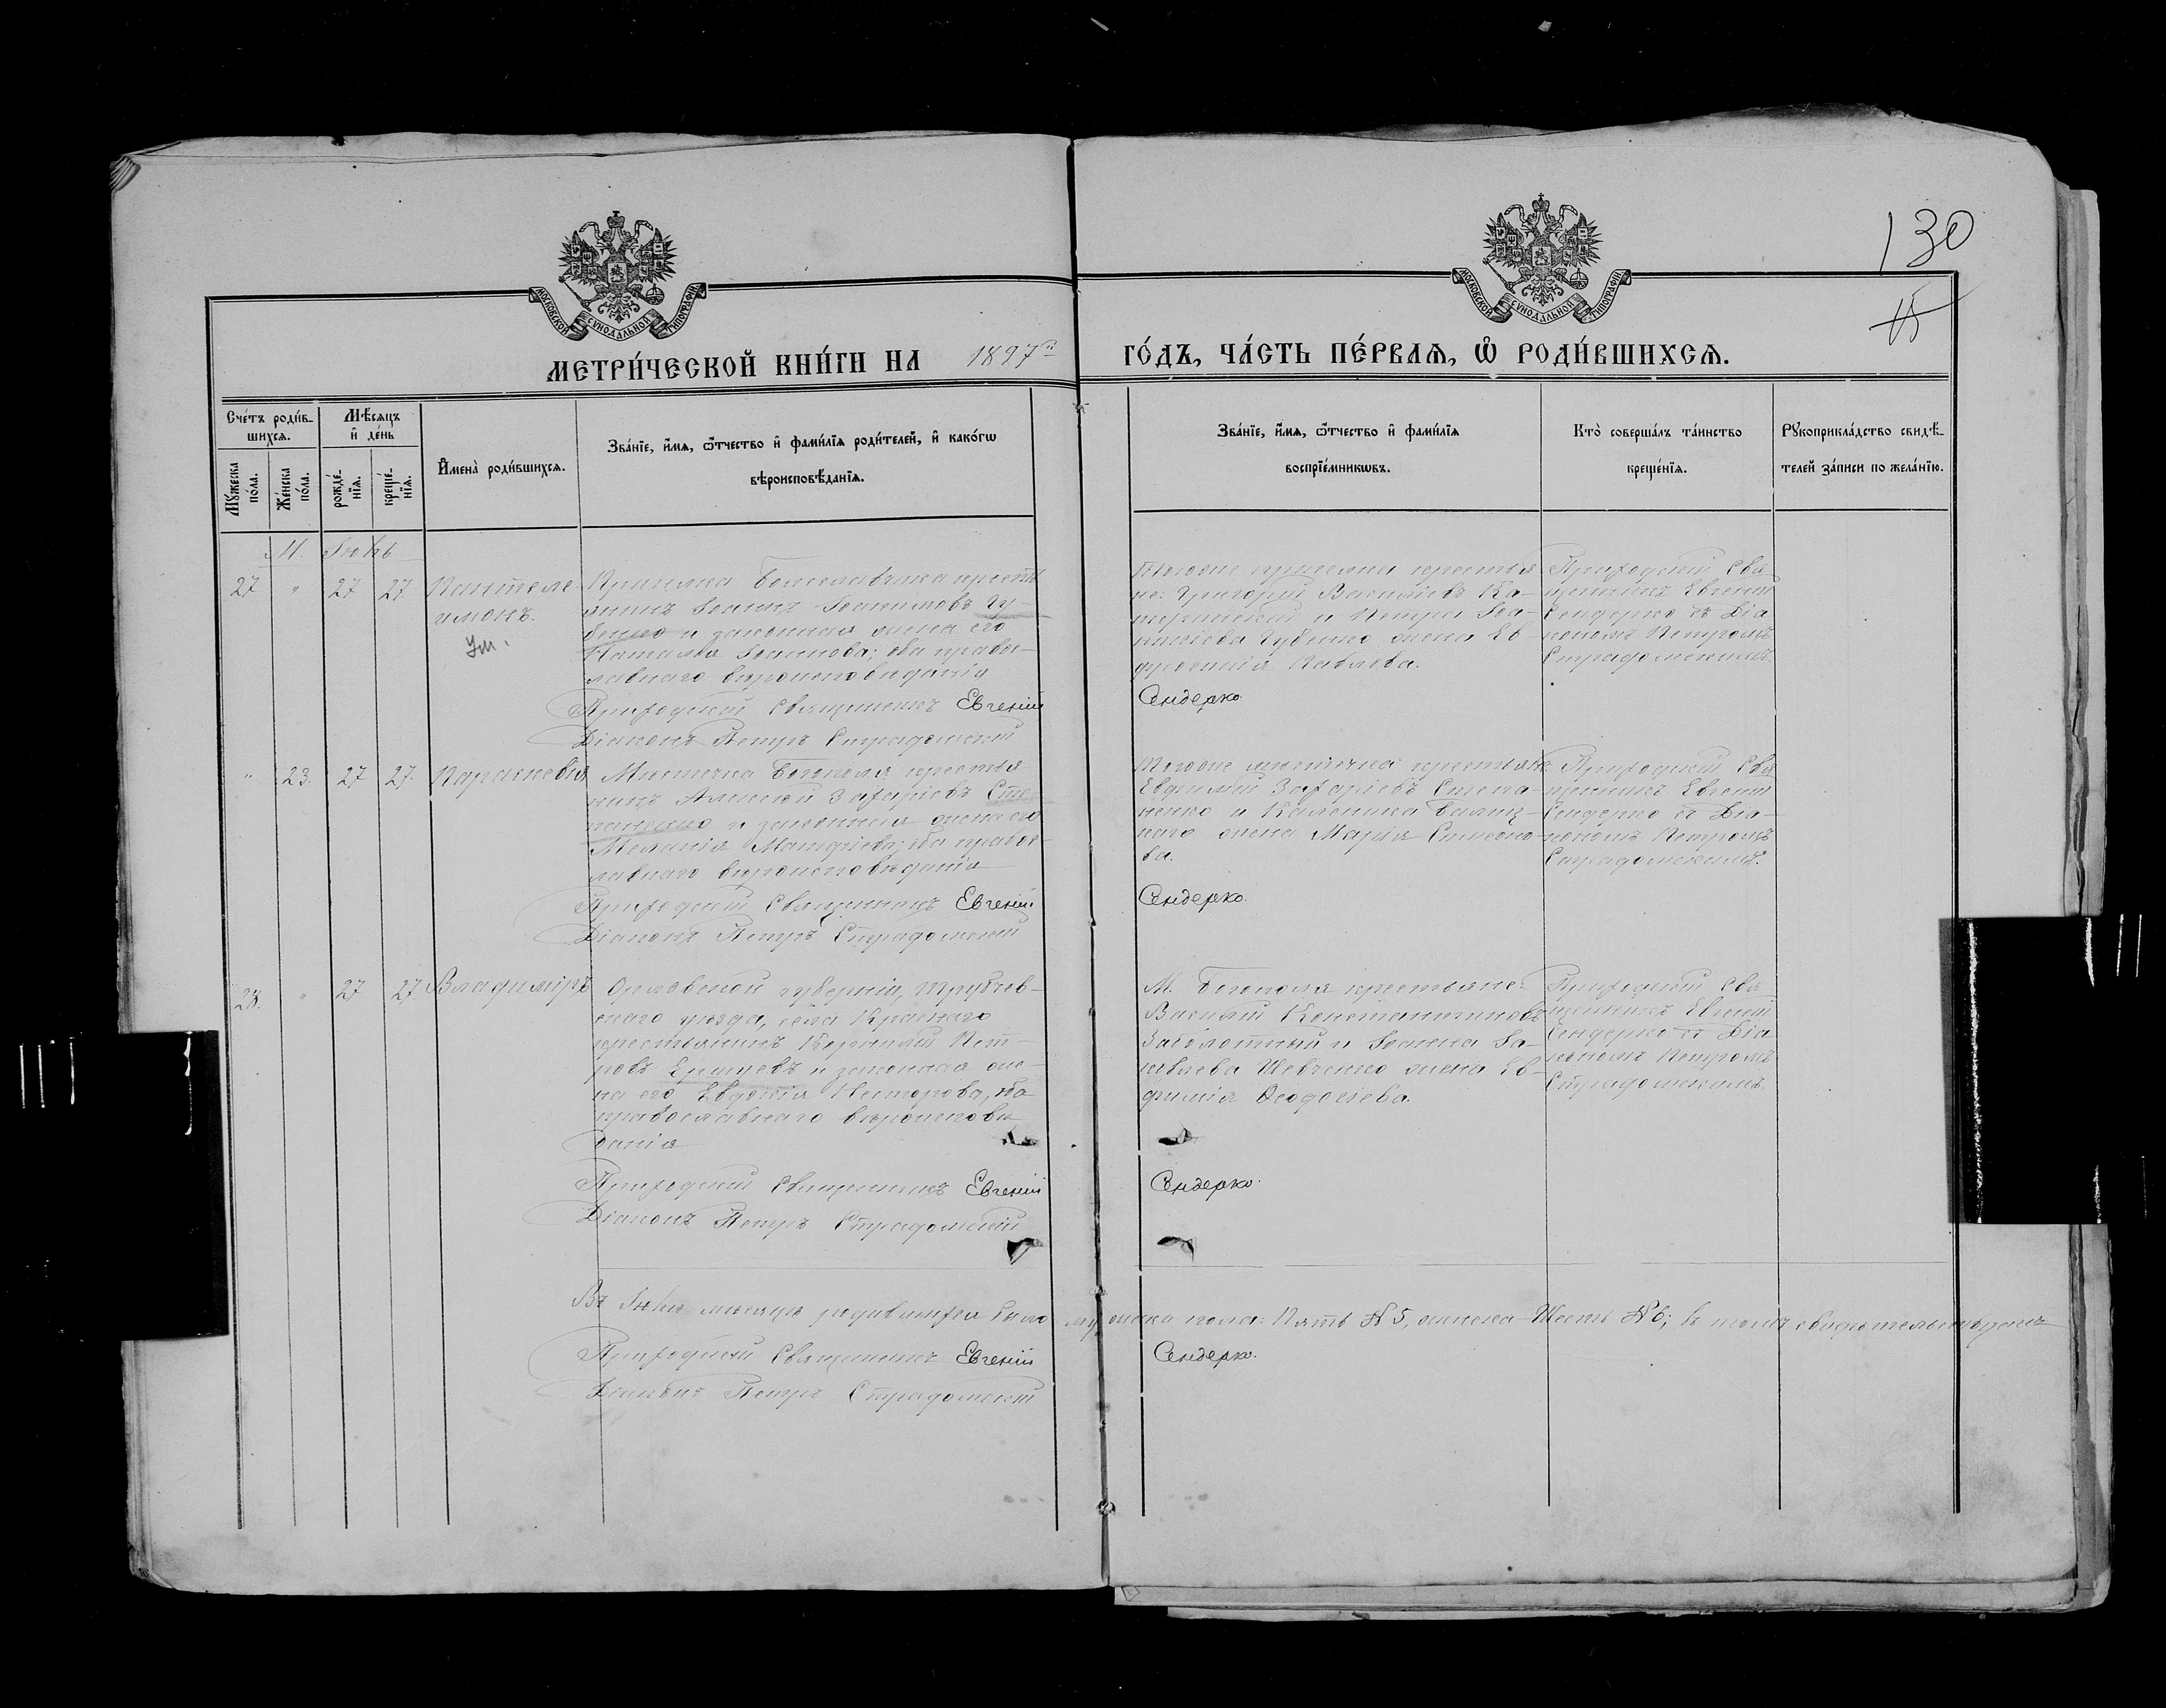 130
15
МОСКОВСКОЙ СУНОДАЛЬНОЙ ТИПОГРАФИИ
МОСКОВСКОЙ СУНОДАЛЬНОЙ ТИПОГРАФИИ
МЕТРИ́ЧЕСКОЙ КНИ́ГИ НА 1897й ГО́ДЪ, ЧА́СТЬ ПЕ́РВАѦ, Ѽ РОДИ́ВШИХСѦ.
Сче́тъ роди́в-
шихсѧ.
Мѣ́сѧцъ
и де́нь
Мꙋ́жеска по́ла.
Же́нска по́ла.
рожде́-нїѧ.
креще́-нїѧ.
Имена̀ роди́вшихсѧ.
Зва́нїе, и́мѧ, ѻ́тчество и фами́лїѧ роди́телей, и како́гѡ
вѣроисповѣ́данїѧ.
Зва́нїе, и́мѧ, ѻ́тчество и фами́лїѧ
воспрїе́мникѡвъ.
Кто̀ соверша́лъ та́инство
креще́нїѧ.
Рꙋкоприкла́дство свидѣ́-
телей за́писи по жела́нїю.
М. Іюнь
27 " 27 27. Пантеле-
имонъ.
Ум.
крестъ
янинъ Іоаннъ Іоакимовъ Гу-
бенко и законная жена его
Наталія Іоаннова; оба право-
славнаго вѣроисповѣданія
Приходскій Священникъ Евгеній
Діаконъ Петръ Страдомскій
крестья-
не: Григорій Василіевъ Ка-
и Петра Іоа-
Губенко жена Ев-
фросинія Павлова.
Сендерко
Приходскій Свя-
щенникъ Евгеній
Сендерко съ Діа-
кономъ Петромъ
Страдомскимъ.
" 23. 27 27. Параскевія
Мѣстечка Богополя крестья-
нинъ Алексій Захаріевъ Сте-
паненко и законная жена его
Меланія Матфіева; оба право-
славнаго вѣроисповѣданія
Приходскій Священникъ Евгеній
Діаконъ Петръ Страдомскій
Тогоже мѣстечка крестьяне:
Евфимій Захаріевъ Степа-
ненко и Калиника
жена Марія Симеоно-
ва.
Сендерко.
Приходскій Свя-
щенникъ Евгеній
Сендерко съ Діа-
кономъ Петромъ
Страдомскимъ.
28. " 27 27. Владиміръ
Орловской губерніи, Трубчев-
скаго уѣзда, села Краснаго
крестьянинъ Корнилій Пет-
ровъ и законная же-
на его Евдокія Несторова, оба
православнаго вѣроисповѣ-
данія
Приходскій Священникъ Евгеній
Діаконъ Петръ Страдомскій
М. Богополя крестьяне:
Василій Константиновъ
Заболотный и Іоанна Іа-
ковлева Шевченко жена Ев-
фимія Ѳеодосіева.
Сендерко.
Приходскій Свя-
щенникъ Евгеній
Сендерко съ Діа-
кономъ Петромъ
Страдомскимъ.
Въ Іюнѣ мѣсяцѣ родившихся было мужска пола: Пять № 5, женска Шесть № 6; въ томъ свидѣтельствуемъ
Приходскій Священникъ Евгеній Сендерко.
Діаконъ Петръ Страдомскій